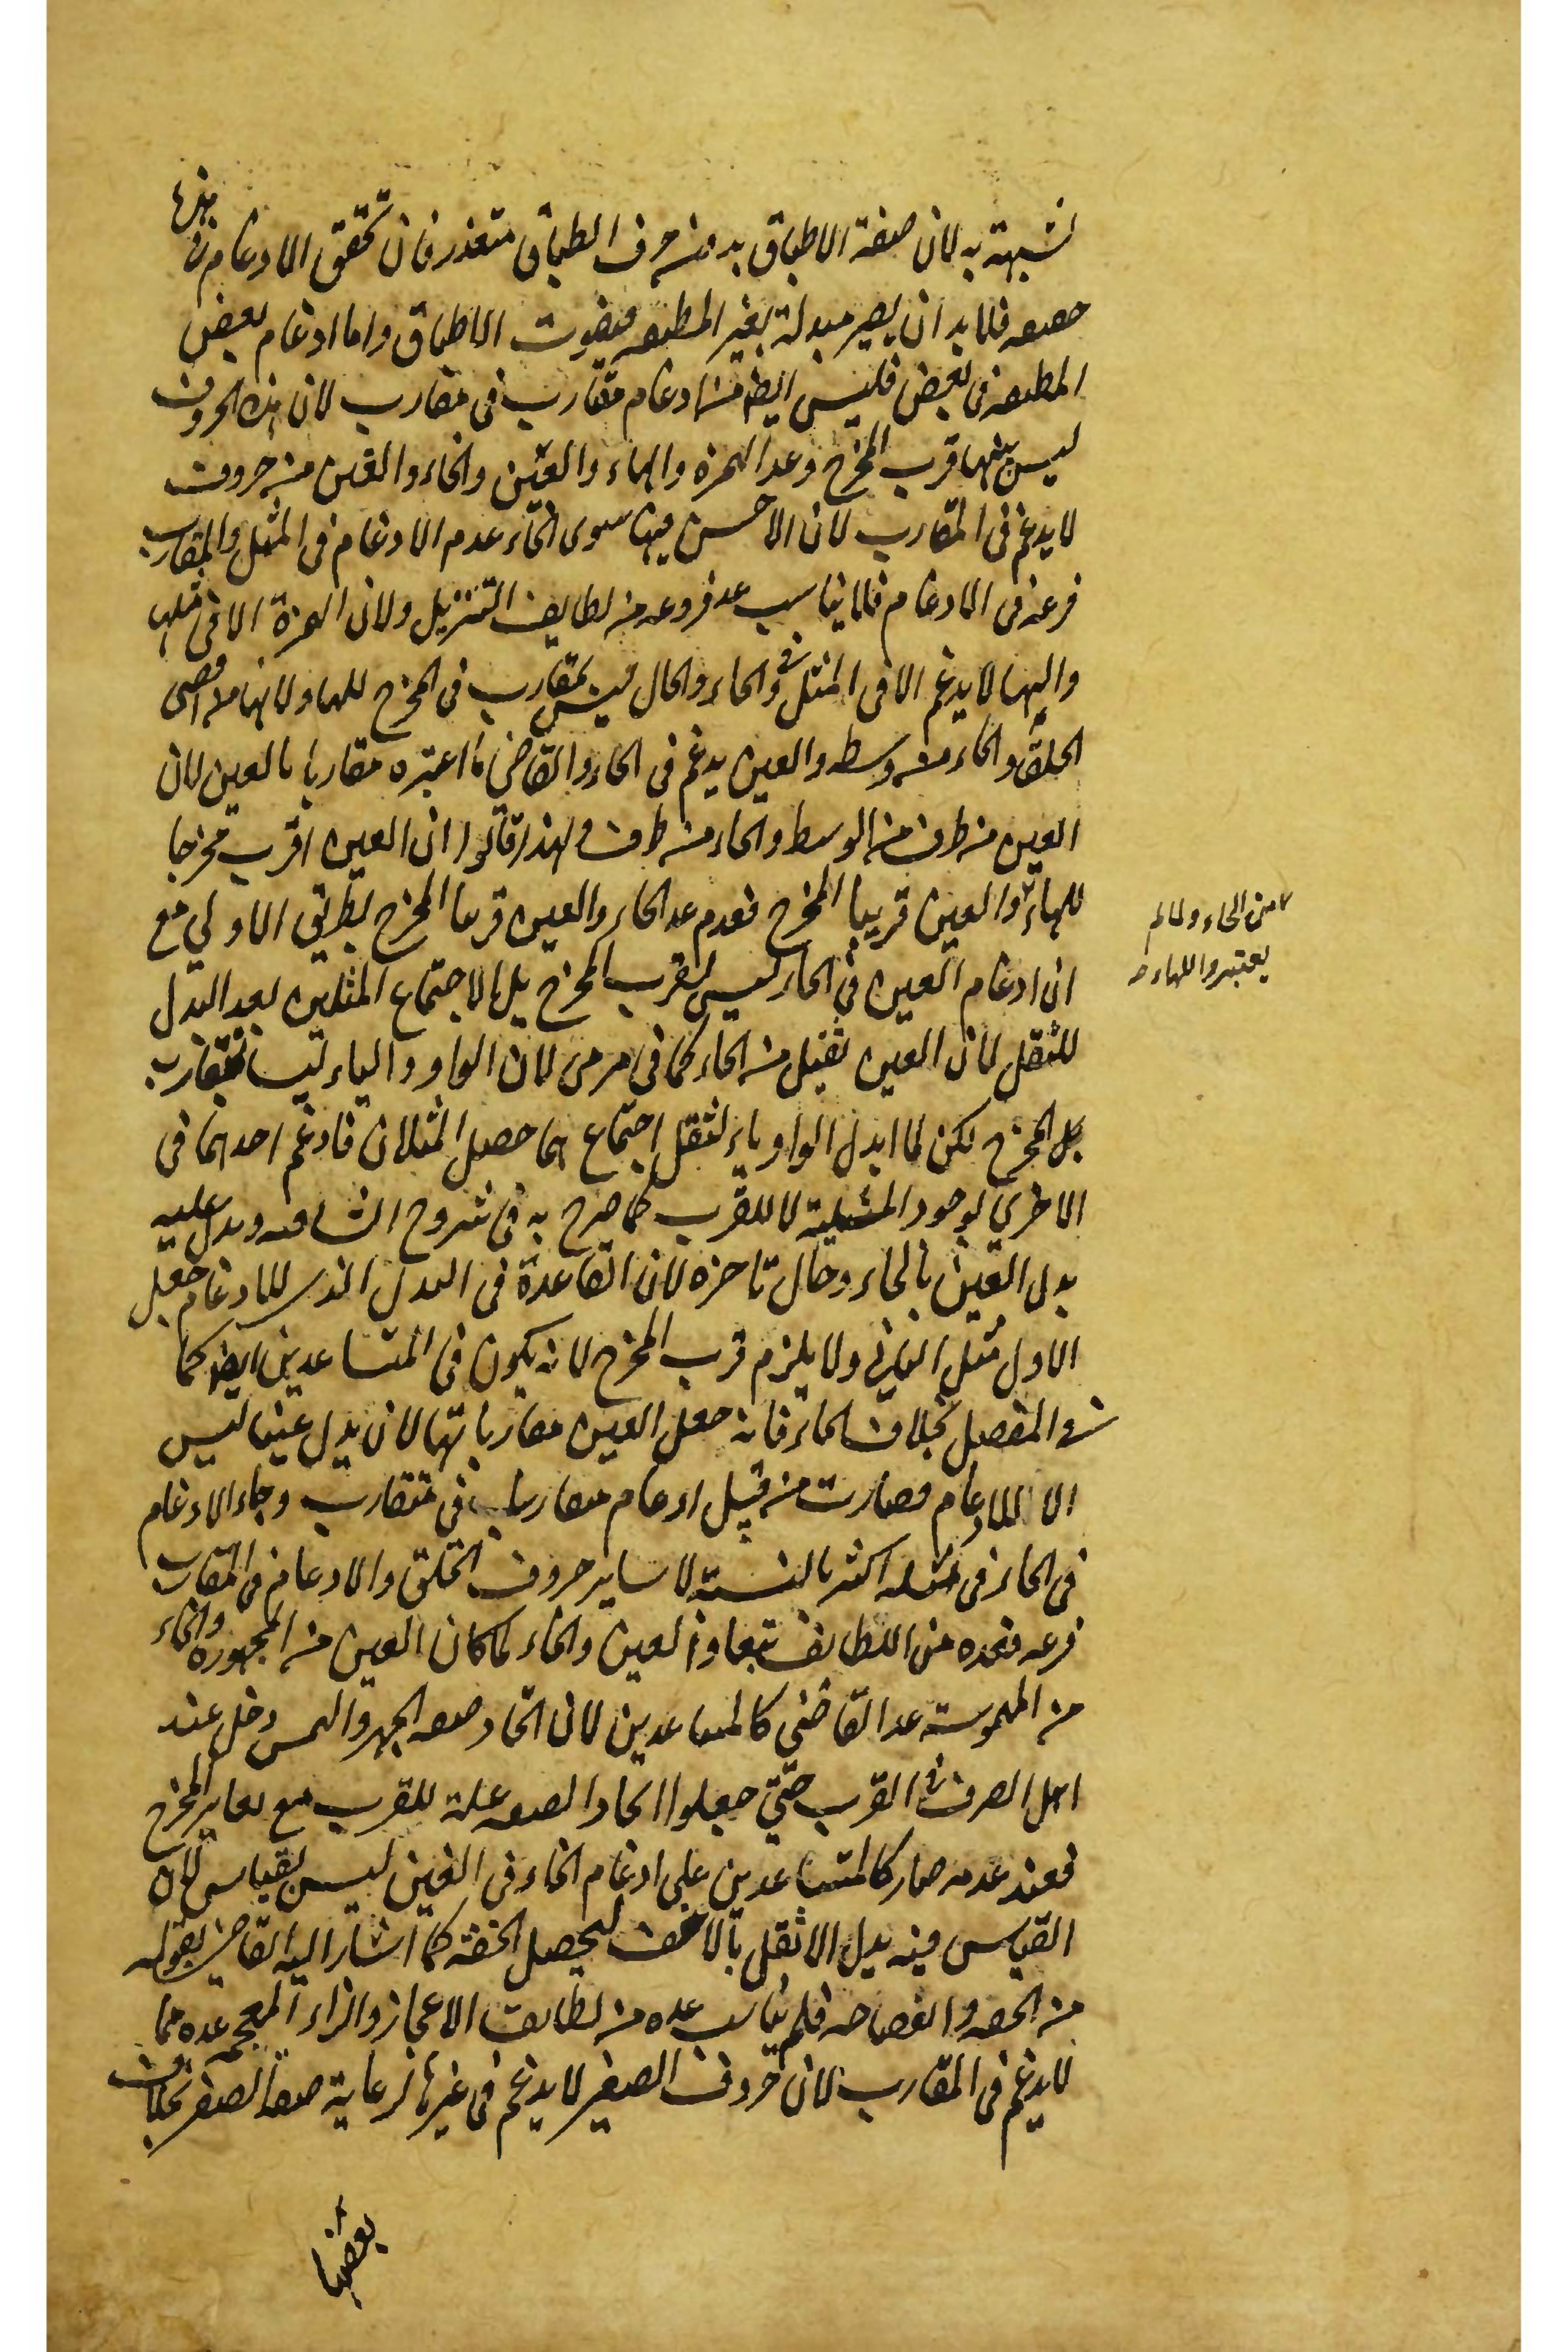 لشبهته به لان صفة الاطباق بدون حرف الطباق متعذر فان تحقق الادغام في هذه
حصصه فلا بد ان يصير مبدلة بغير المطبقه فيفوت الاطباق واما ادغام بعض
المطبقه في بعض فليس ايضا من ادغام متقارب في متقارب لان هذه الحروف
ليس بينها قرب المخرج وعد الهمزه والهاء والعين والخاء والغين من حروف
لا يدغم في المتقارب لان الاحسن فيها سوى الخاء عدم الادغام في المثل والمتقارب
فرعه في الادغام فلا يناسب عد فروعه من لطايف التنزيل ولان الهمزة الا في مثلها
والهاء لا يدغم الا في المثل وفي الحاء والحال ليس بمتقارب في المخرج للهاء ولانها من اقصى
الحلق والحاء من وسطه والعين يدغم في الحاء والقاضي ما اعتبره مقاربا بالعين لان
العين من طرف من الوسط والحاء من طرف ولهذا قالوا ان العين اقرب مخرجا
للهاء والعين قريبا المخرج فعدم عد الحاء والعين قريبا المخرج بطريق الاولي مع
من الحاء ولما لم
يعتبروا الهاء
ان ادغام العين في الحاء ليس لقرب المخرج بل لاجتماع المثلين بعد البدل
للثقل لان العين ثقيل من الحاء كما في مرمى لان الواو والياء ليسا بمتقارب
المخرج لكن لما ابدل الواو ياء لثقل اجتماعهما حصل المثلان فادغم احدهما في
الاخري لوجود المثلية لا للقرب كما صرح به في شروح الشافيه ويدل عليه
بدل العين بالحاء وحال تاخره لان القاعدة في البدل الذي للادغام جعل
الاول مثل الثاني ولا يلزم قرب المخرج لانه يكون في المتباعدين ايضا كما
في المفصل بخلاف الحاء فانه جعل العين مقاربا لها لان بدل عينا ليس
الا للادغام فصارت من قبيل ادغام متقارب في متقارب وجاء الادغام
في الحاء في مثله اكثر بالنسبة لا ساير حروف الحلق والادغام في المتقارب
فرعه فعده من اللطايف تبعا والعين والخاء لما كان العين من المجهوره والخاء
من المهموسته عد القاضي كالمتباعدين لان اتحاد صفه الجهر والهمس دخل عند
اهل الصرف في القرب حتى جعلوا اتحاد الصفه علة للقرب مع تغاير المخرج
فعند عدمه صار كالمتباعدين على ادغام الخاء في الغين ليس بقياس لان
القياس فيه بدل الاثقل بالاخف ليحصل الخفة كما اشار اليه القاضي بقوله
من الخفه والفصاحه فلم يناسب عده من لطايف الاعجاز والزاء المعجمه عده مما
لا يدغم في المتقارب لان حروف الصفير لا يدغم في غيرها لرعاية صفة الصفير بخلاف
بعضها